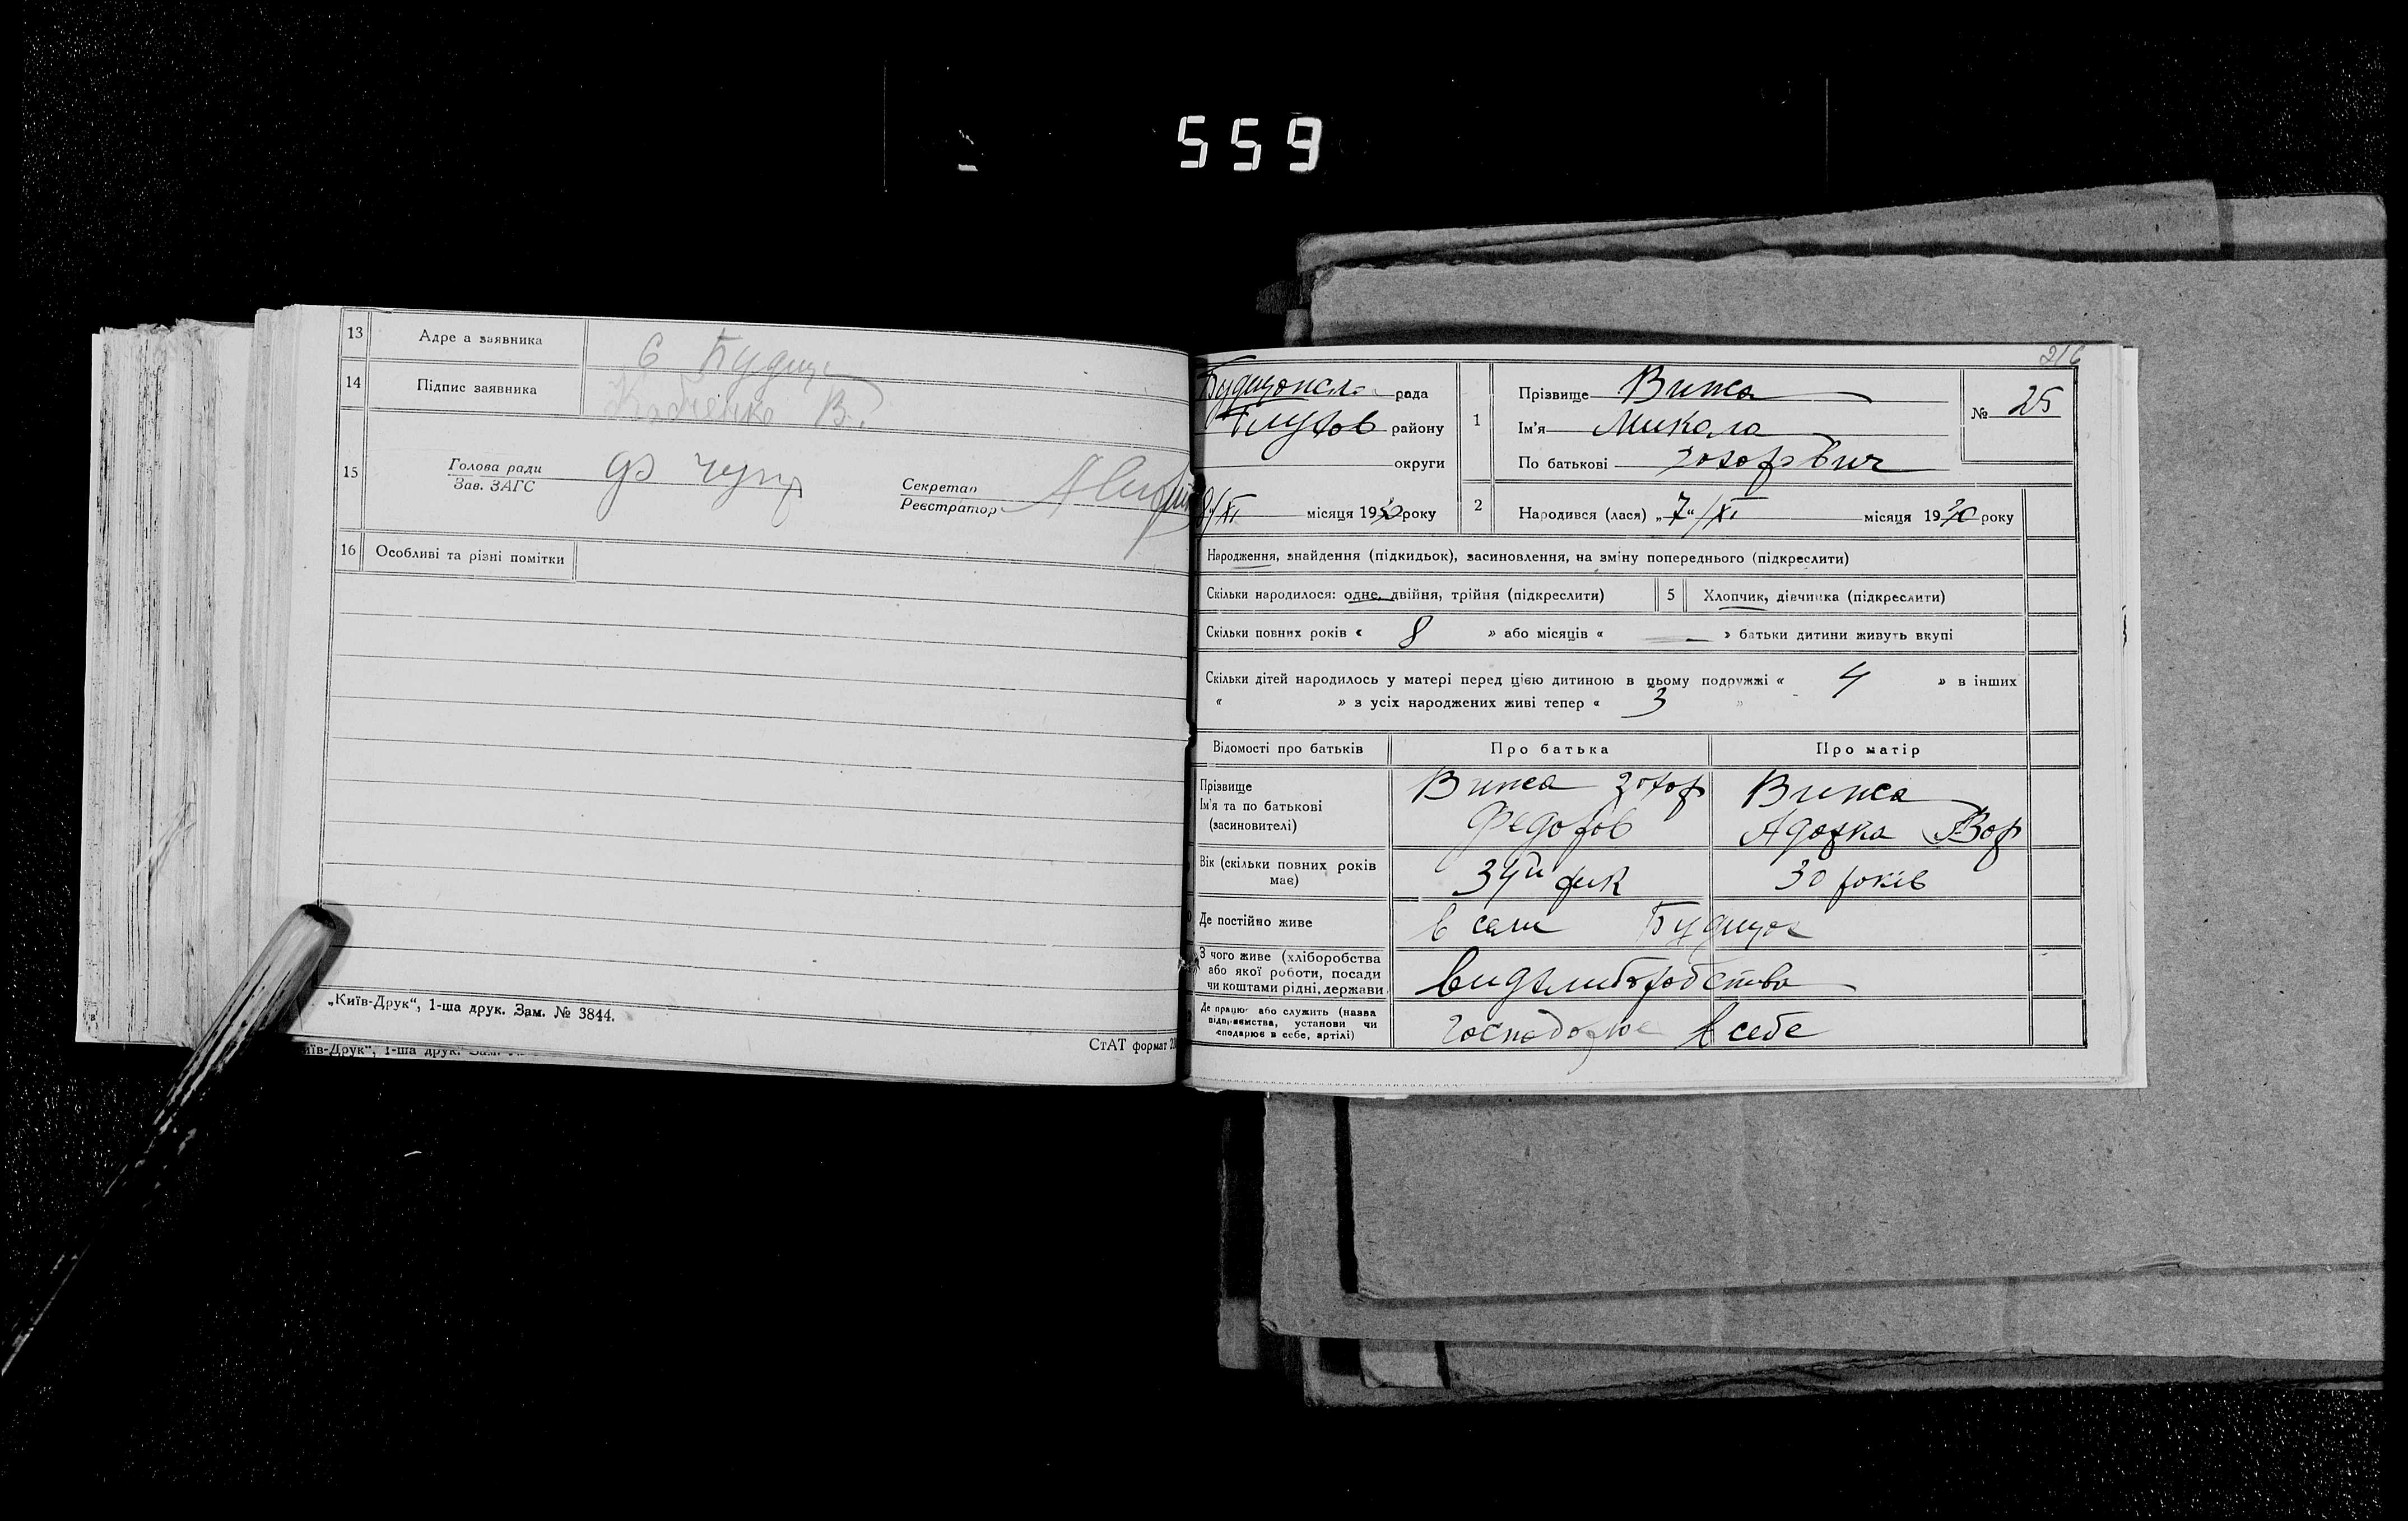 559
13 Адре а заявника с Будищі
14 Підпис заявника В.
15 Голова ради Секретар
Зав. ЗАГС Реєстратор
16 Особливі та різні помітки
„Київ-Друк“, 1-ша друк. Зам. № 3844.
СтАТ формат
їв-Друк“, 1-ша друк.
216
рада
Глухов району
округи
8/XI місяця 1930 року
1 Прізвище Вижа
Ім'я Микола
По батькові Зохорович
№ 25
2 Народився (лася) „7“/XI місяця 1930 року
Народження, знайдення (підкидьок), засиновлення, на зміну попереднього (підкреслити)
Скільки народилося: одне, двійня, трійня (підкреслити) 5 Хлопчик, дівчинка (підкреслити)
Скільки повних років « 8 » або місяців « — » батьки дитини живуть вкупі
Скільки дітей народилось у матері перед цією дитиною в цьому подружжі « 4 » в інших
« » з усіх народжених живі тепер « 3 »
Відомості про батьків Про батька Про матір
Прізвище
Ім'я та по батькові
(засиновителі)
Вижа Зохор
Федоров
Вижа
Вік (скільки повних років
має)
34й рик 30 років
Де постійно живе в сели Будищах
З чого живе (хліборобства
або якої роботи, посади
чи коштами рідні, держави
Де працює або служить (назва
підприємства, установи чи
сподарює в себе, артілі)
Господорює в себе